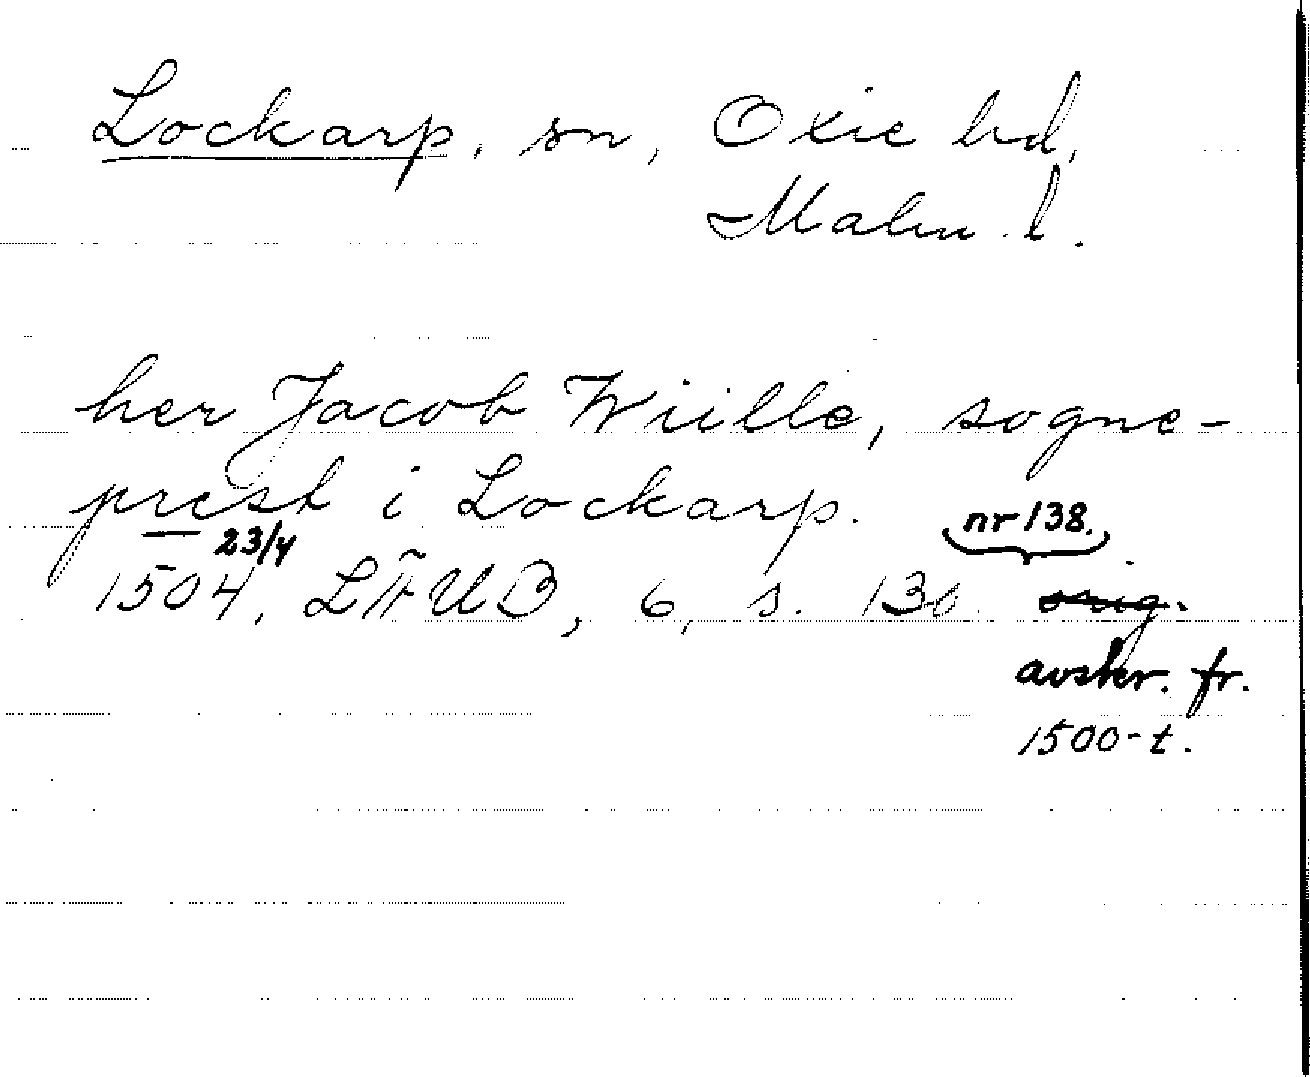 Lockarp, sn, Oxie hd,
Malm. l.
her Jacob Wiille, sogne-
prest i Lockarp.
23/4 nr 138.
1504, LÄUB, 6, s. 130. orig.
avskr. fr.
1500-t.